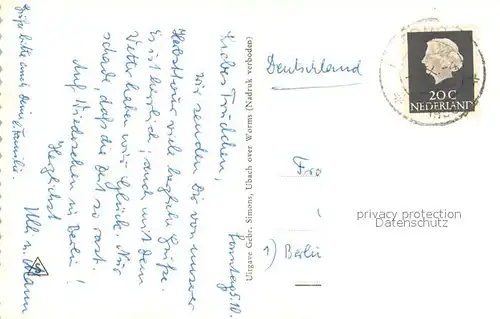 Sonntag 5.10.
Liebes Trudchen,
wir senden Dir von unserer
Herbsttour viele herzliche Grüße.
Es ist herrlich, auch mit dem
Wetter haben wir Glück. Nur
schade, daß die Zeit so rast.
Auf Wiedersehen in Berlin!
Herzlichst
Ulli u.
Grüße bitte auch Deine Familie.
Uitgave Gebr. Simons, Ubach over Worms (Nadruk verboden)
Deutschland
20 C
NEDERLAND
Fra
1) Berlin
privacy protection
Datenschutz